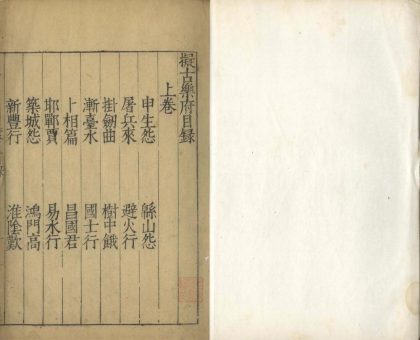 擬古樂府目録
上卷
申生怨
緜山怨
屠兵來
避火行
掛劔曲
樹中餓
漸臺水
國士行
卜相篇
昌國君
邯鄲賈
易水行
築城怨
鴻門高
新豐行
淮陰歎